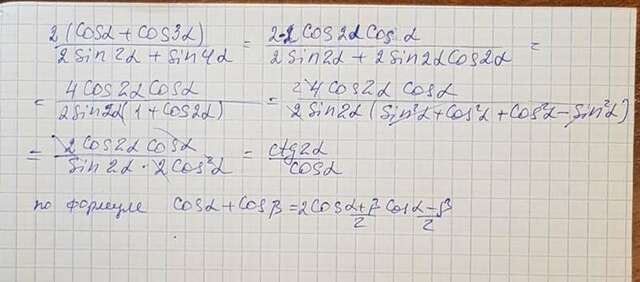 2(cosα + cos3α) / 2sin2α + sin4α = 2·2cos2α cosα / 2sin2α + 2sin2αcos2α =
= 4cos2αcosα / 2sin2α(1+cos2α) = 4cos2α cosα / 2sin2α(sin²α+cos²α+cos²α−sin²α)
= 2cos2α cosα / sin2α·2cos²α = ctg2α / cosα
по формуле cosα+cosβ=2cos α+β/2 cos α−β/2